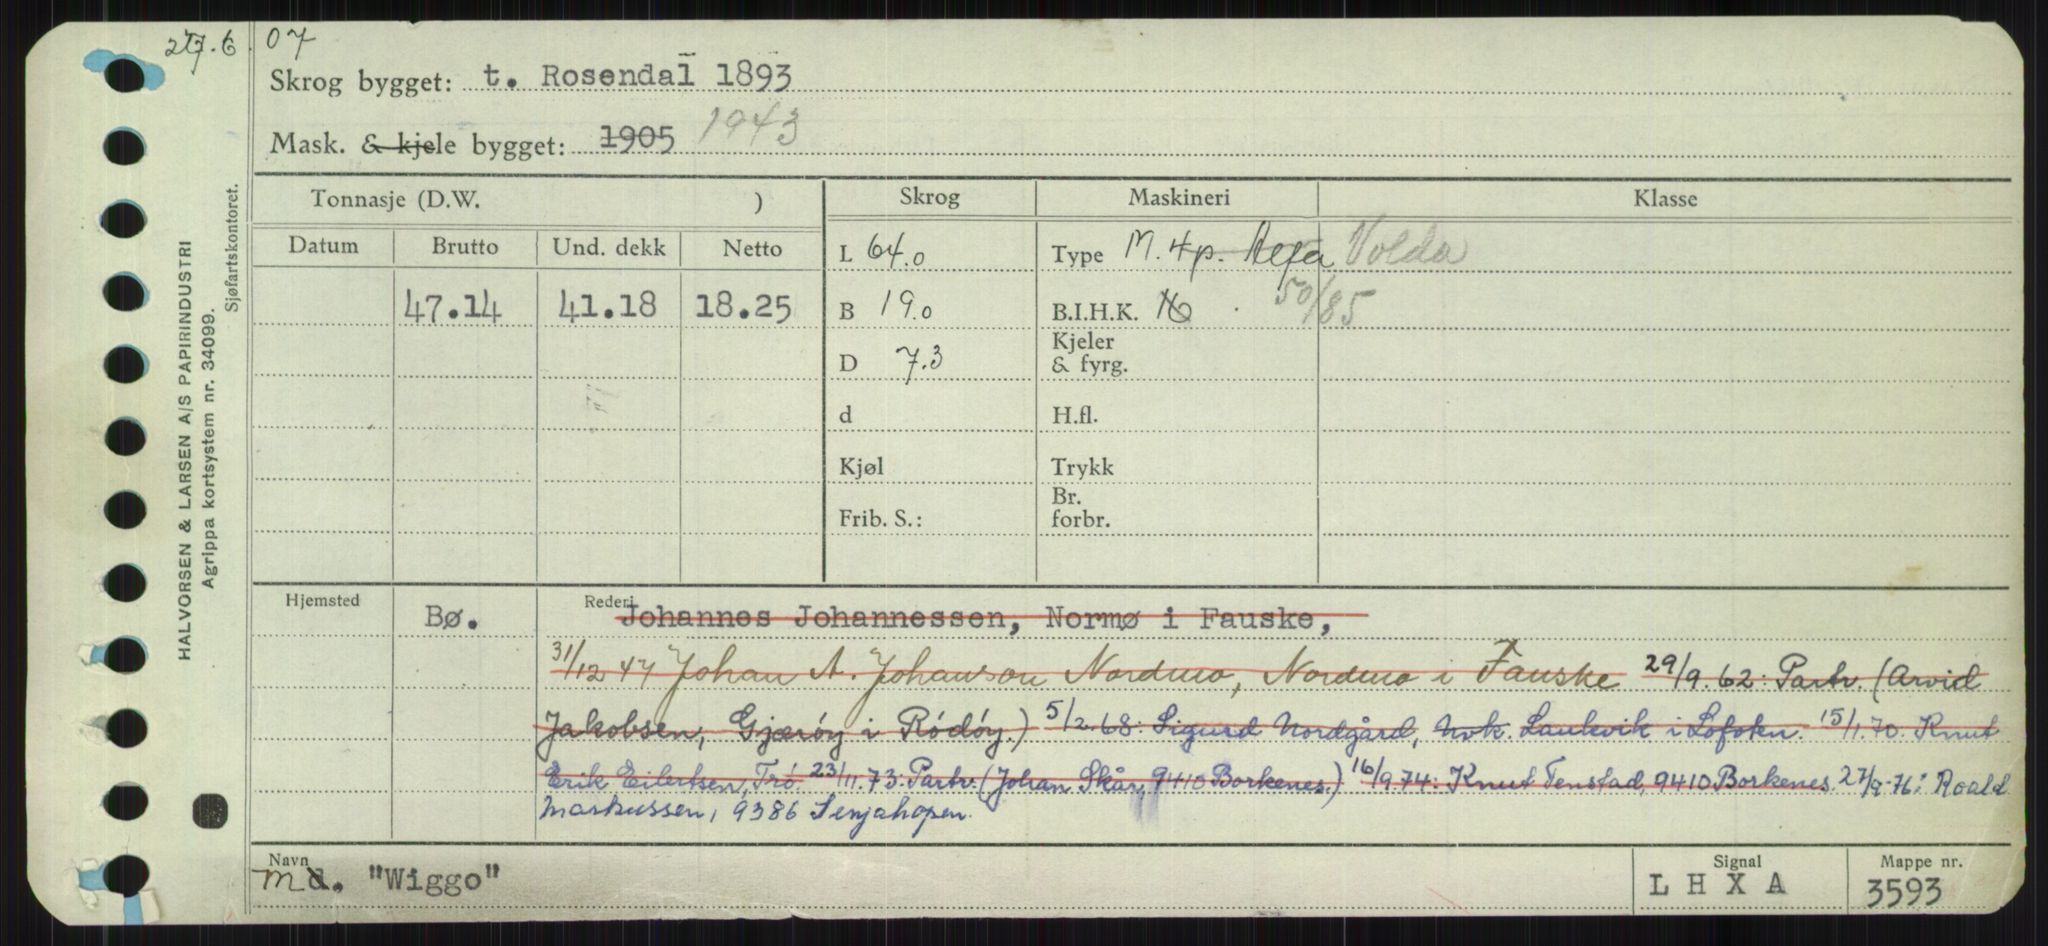 27.6.07
Skrog bygget: t. Rosendal 1893
Mask. & kjele bygget: 1905 1943
Tonnasje (D.W. ) Skrog Maskineri Klasse
Datum Brutto Und. dekk Netto L 64.0 Type M. 4p. Alfa Volda
47.14 41.18 18.25 B 19.0 B.I.H.K. 50/85
Kjeler
D 7.3 & fyrg.
d H.fl.
Kjøl Trykk
Br.
Frib. S.: forbr.
Hjemsted Bø. Rederi Johannes Johannessen, Normø i Fauske,
31/12 47 Johan A. Johanson Nordmo, Nordmo i Fauske 29/9.62: Partr. (Arvid
Jakobsen, Gjærøy i Rödöy.) 5/2.68: Sigurd Nordgård, Nvk. Laukvik i Lofoten. 15/1.70. Knut
Erik Eilertsen, Trø. 23/11.73: Partr. (Johan Skår, 9410 Borkenes.) 16/9.74: Knut Tenstad, 9410 Borkenes. 27/9-76: Roald
Markussen, 9386 Senjahopen.
Navn Signal Mappe nr.
m d. "Wiggo" L H X A 3593
HALVORSEN & LARSEN A/S PAPIRINDUSTRI
Agrippa kortsystem nr. 34099.
Sjøfartskontoret.